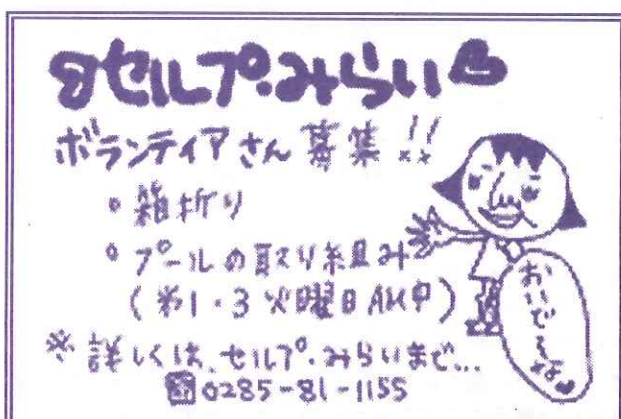 セルプ・みらい
ボランティアさん募集!!
・箱折り
・プールの取り組み
(第1・3火曜日AM中)
おいで〜
※詳しくは、セルプ・みらいまで...
☎0285-81-1155